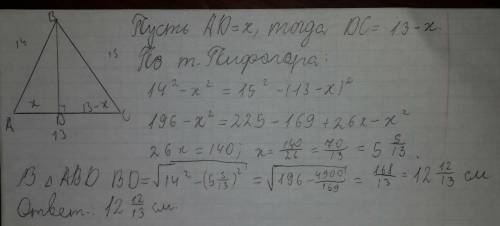 B
14
15
x
13-x
A
D
C
13
Пусть AD=x, тогда DC= 13-x.
По т. Пифагора:
14² - x² = 15² - (13-x)²
196 - x² = 225 - 169 + 26x - x²
26x = 140; x = 140/26 = 70/13 = 5 5/13.
В △ ABD BD = √(14² - (5 5/13)²) = √(196 - 4900/169) = 168/13 = 12 12/13 см
Ответ: 12 12/13 см.